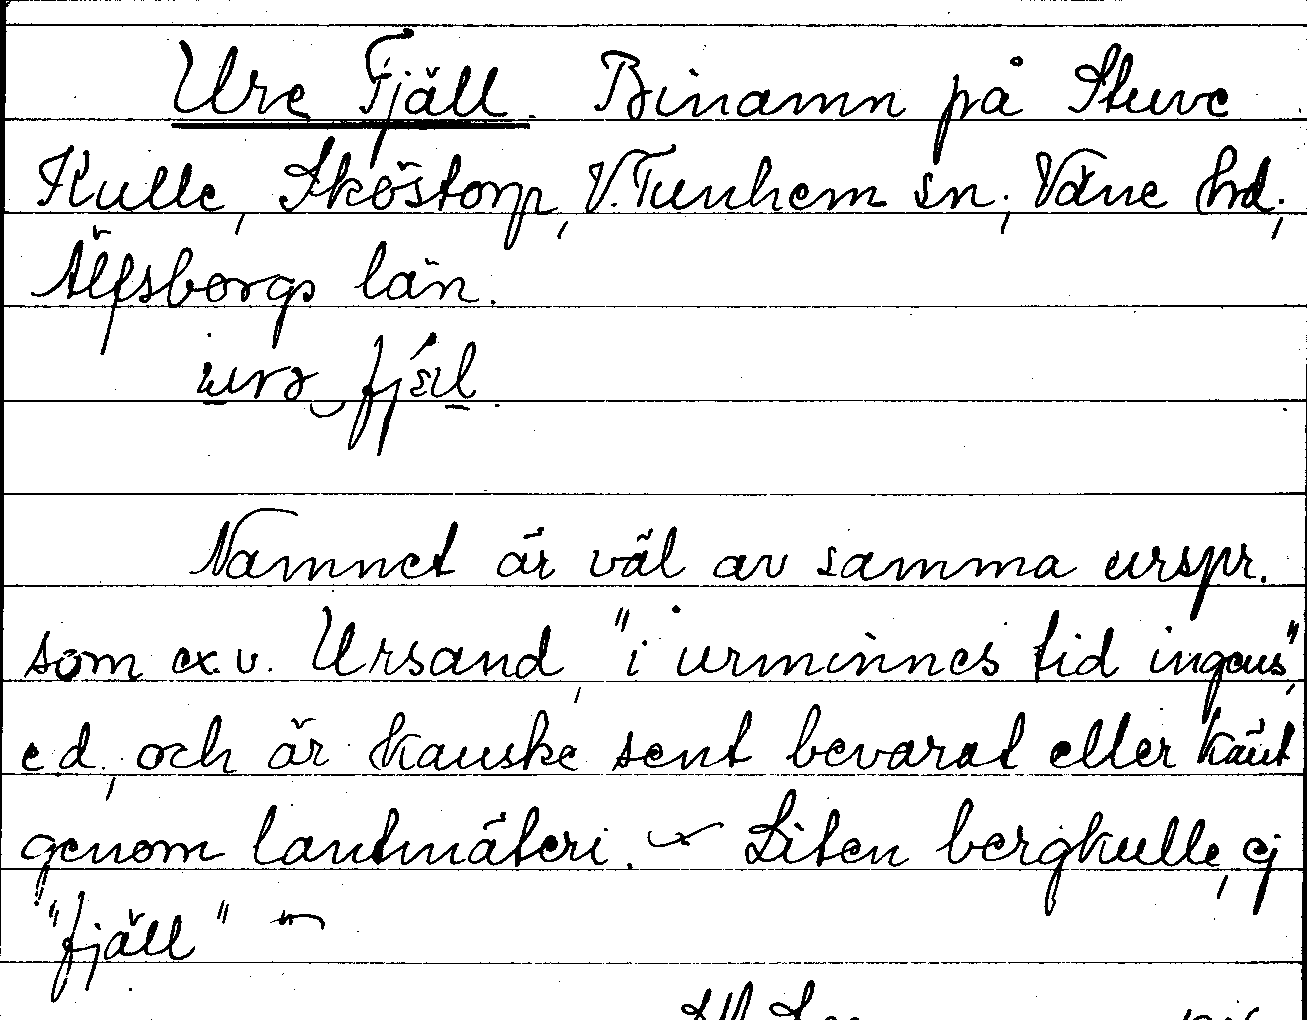 Ure Fjäll. Binamn på Stuve
Kulle, Sköstorp, V. Tunhem sn; Väne hd;
Älfsborgs län.
Namnet är väl av samma urspr.
som ex.v. Ursand, "i urminnes tid ingens",
e.d., och är kanske sent bevarat eller känt
genom lantmäteri. – Liten bergkulle, ej
"fjäll" –